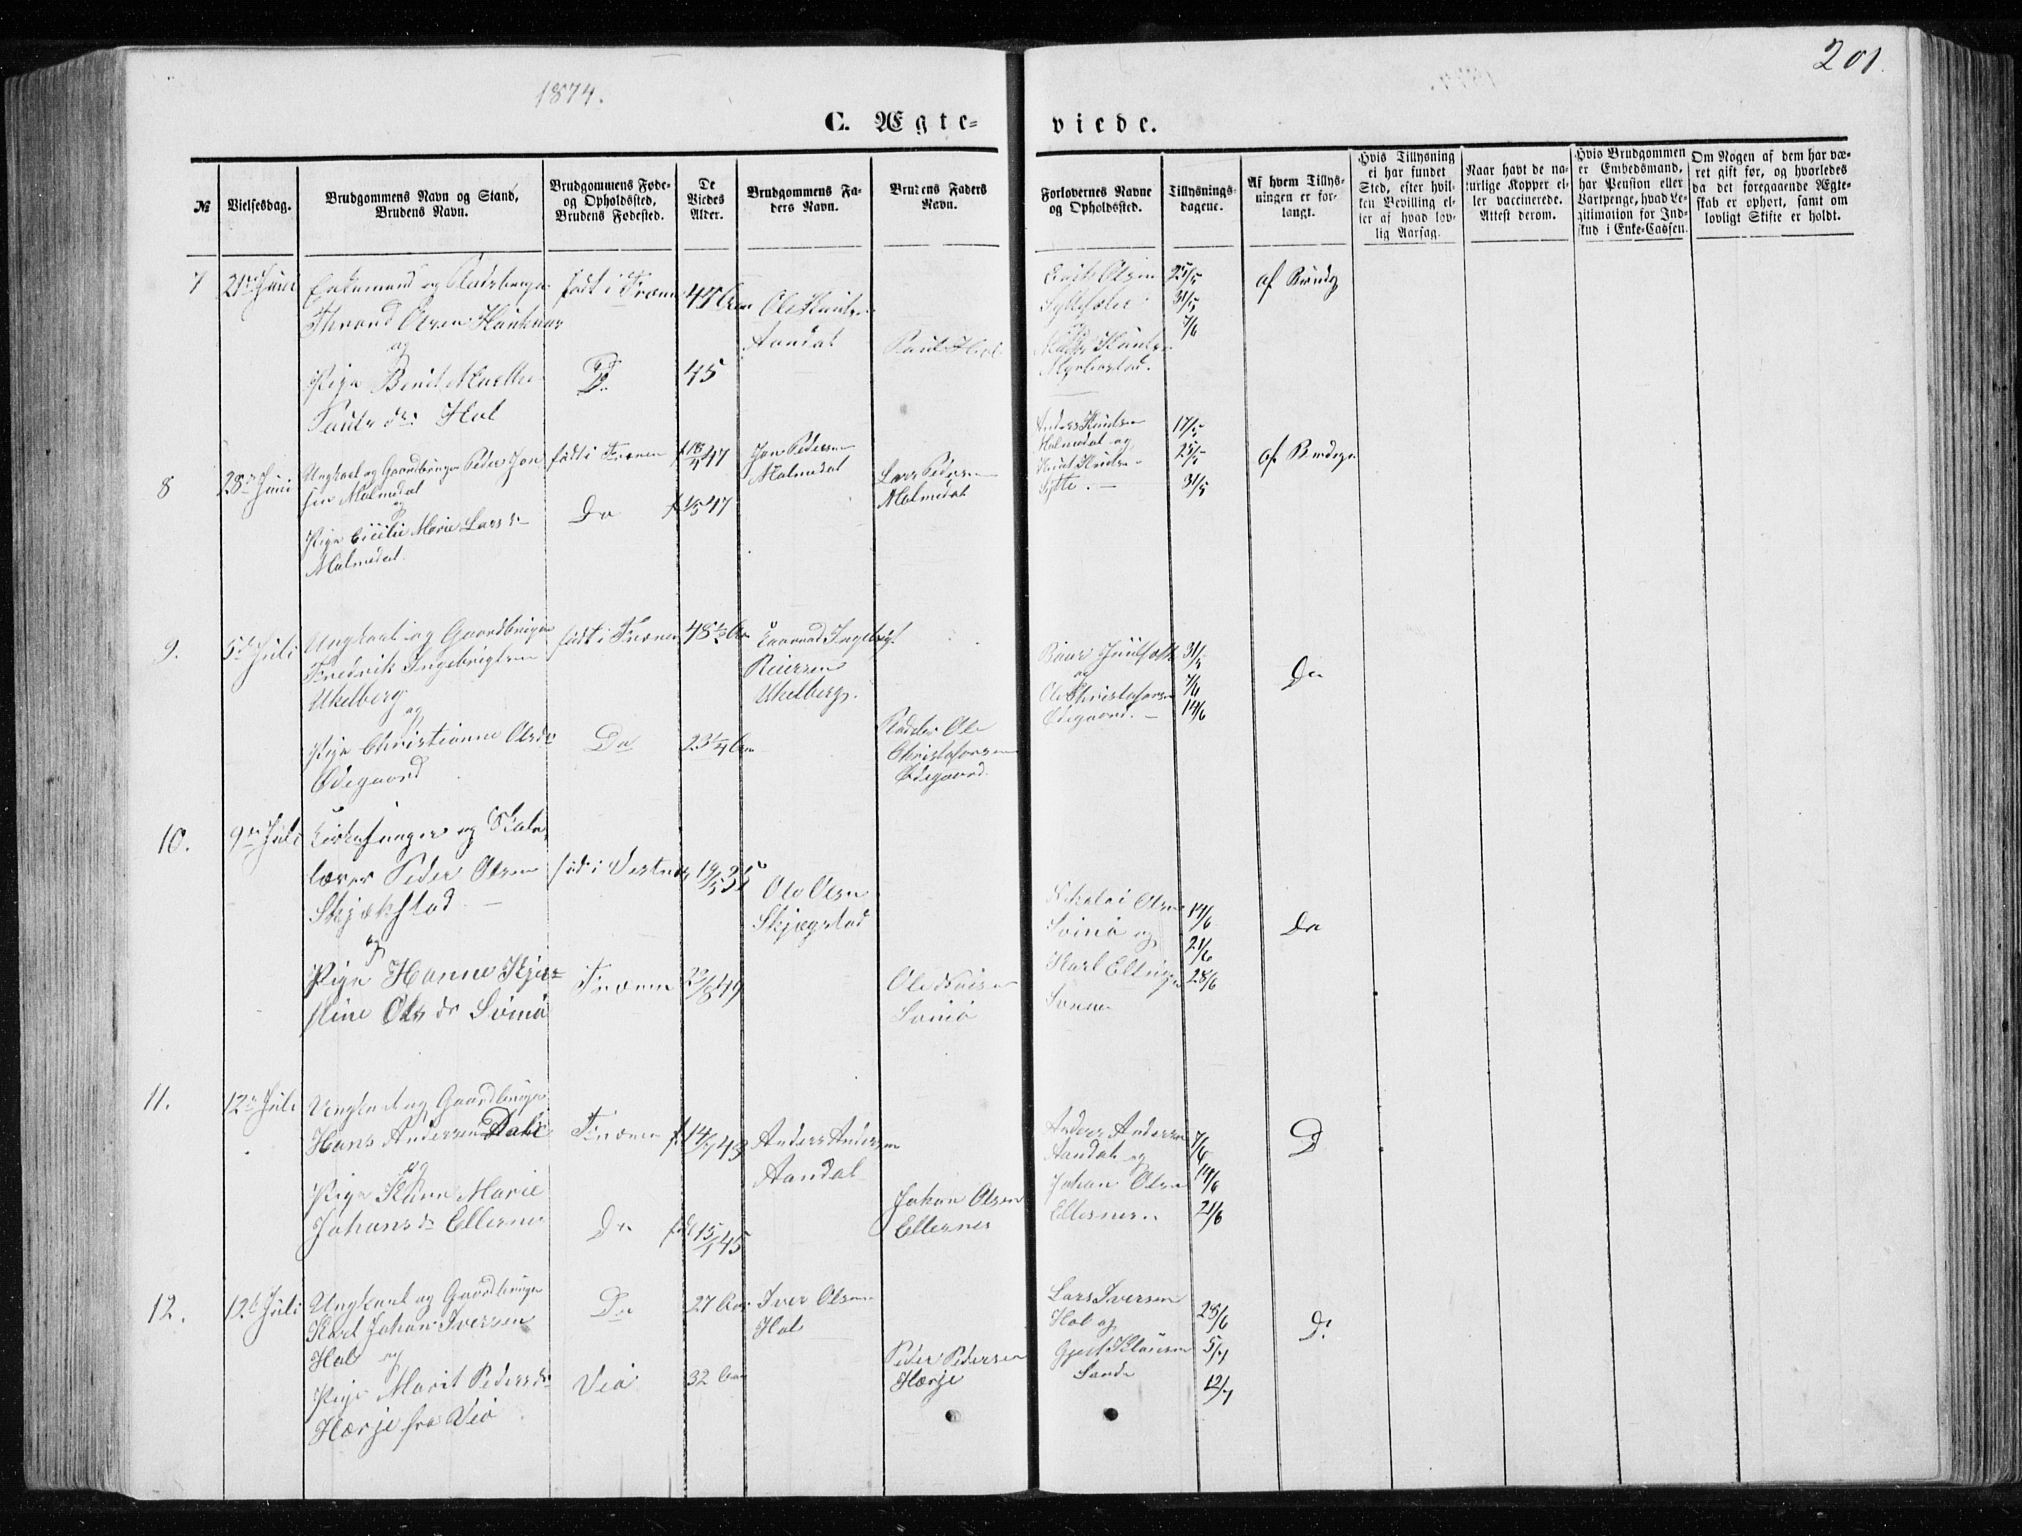 1874.
201.
C. Ægte-
viede.
№
Vielsesdag.
Brudgommens Navn og Stand,
Brudens Navn.
Brudgommens Føde-
og Opholdssted,
Brudens Fødested.
De
Viedes
Alder.
Brudgommens Fa-
ders Navn.
Brudens Faders
Navn.
Forlovernes Navne
og Opholdssted.
Tillysnings-
dagene.
Af hvem Tillys-
ningen er for-
langt.
Hvis Tillysning
ei har fundet
Sted, efter hvil-
ken Bevilling el-
ler af hvad lov-
lig Aarsag.
Naar havt de na-
turlige Kopper el-
ler vaccinerede.
Attest derom.
Hvis Brudgommen
er Embedsmand,
har Pension eller
Vartpenge, hvad Le-
gitimation for Ind-
skud i Enke-Cassen.
Om Nogen af dem har væ-
ret gift før, og hvorledes
da det foregaaende Ægte-
skab er ophørt, samt om
lovligt Skifte er holdt.
7
21de Juni
Enkemand og
Olsen
og
Pige Berit Marthe
Hol
født i Frænen
Do
45
Ole Knutsen
Aandal
Hol
Erik Olsen
25/5
31/5
7/6
af Brudg
8
28de Juni
Ungkarl og Gaardbruger Peder Jon
sen Malmedal
og
Pige Cicilie Marie Larsd
Malmedal.
født i Frænen
Do
47
47
Jon Pedersen
Malmedal
Lars Pedersen
Malmedal
Anders Knudsen
Malmedal og
Knut Knutsen
Sylte.
17/5
25/5
31/5
af Brudg
9.
5te Juli
Ungkarl og Gaardbruger
Fredrik Ingebrigtsen
Ukelberg
og
Pige Christianne Olsdr
Ødegaard
født i Frænen
48 1/2 Aar
Do
23 1/4 Aar
Ingebrigt
Reiersen
Ukelberg.
Ole
Christofersen
Ødegaard.
og
Ole Christofersen
Ødegaard.
31/5
7/6
14/6
Do
10.
9de Juli
Kirkesanger og Skole
lærer Peder Olsen
Skjækstad
og
Pige Hanne Kjer-
stine Olsdr Svinø
fød i Vestnæs
19/5 35
Frænen
22/8 49
Ole Olsen
Skjegstad
Svinø
Nikolai Olsen
Svinø og
Karl Ellingsen
14/6
21/6
28/6
Do
11.
12te Juli
Ungkarl og Gaardbruger
Hans Andersen Dahle
og
Pige Karen Marie
Johansd Ellesnes
Frænen
14/7 43
Do
15/1 45
Anders Andersen
Aandal
Johan Olsen
Ellesnes
Anders Andersen
Aandal og
Johan Olsen
Ellesnes
7/6
14/6
21/6
D
12.
12te Juli
Ungkarl og Gaardbruger
Karl Johan Iversen
Hol og
Pige Marit Pedersdr
Hærje fra Veø
Do
27 Aar
Veø
32 Aar
Iver Olsen
Hol
Peder Pedersen
Hærje
Lars Iversen
Hol og
Gjert Klausen
Sande
28/6
5/7
12/7
D: